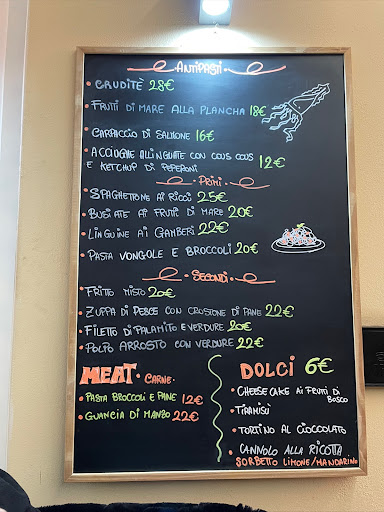 ANTIPASTI
• CRUDITÈ 28€
• FRUTTI DI MARE ALLA PLANCHA 18€
• CARPACCIO DI SALMONE 16€
• ACCIUGHE ALLINGUATE CON COUS COUS
E KETCHUP DI PEPERONI 12€
• PRIMI •
• SPAGHETTONE AI RICCI 25€
• BUSIATE AI FRUTTI DI MARE 20€
• LINGUINE AI GAMBERI 22€
• PASTA VONGOLE E BROCCOLI 20€
• SECONDI •
• FRITTO MISTO 20€
• ZUPPA DI PESCE CON CROSTONE DI PANE 22€
• FILETTO DI PALAMITO E VERDURE 20€
• POLPO ARROSTO CON VERDURE 22€
MEAT • CARNE •
• PASTA BROCCOLI E PANE 12€
• GUANCIA DI MANZO 22€
DOLCI 6€
• CHEESECAKE AI FRUTTI DI
BOSCO
• TIRAMISÙ
• TORTINO AL CIOCCOLATO
• CANNOLO ALLA RICOTTA
SORBETTO LIMONE/MANDARINO